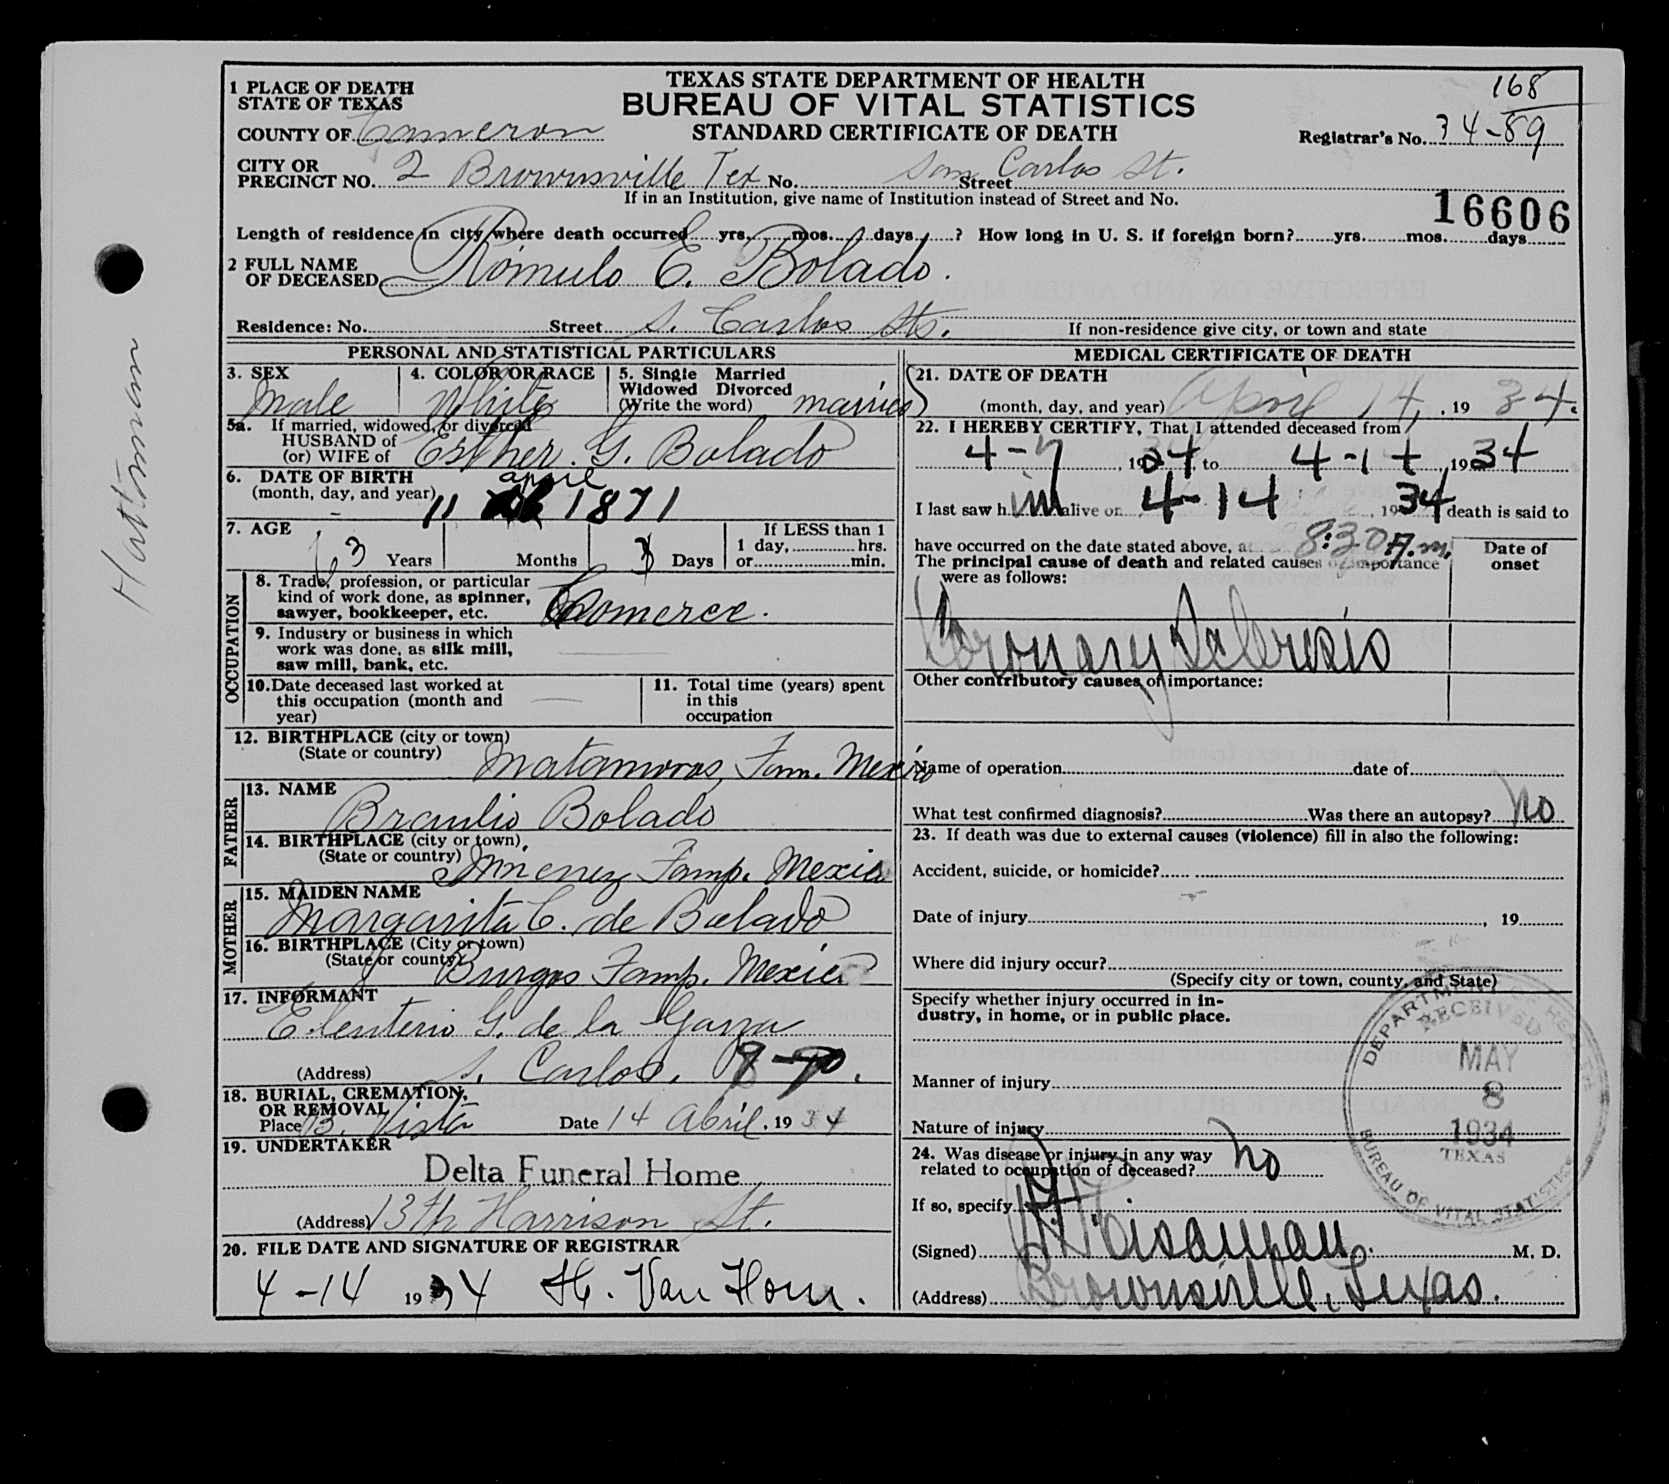 TEXAS STATE DEPARTMENT OF HEALTH
BUREAU OF VITAL STATISTICS
STANDARD CERTIFICATE OF DEATH
168
Registrar's No. 34-89
16606
1 PLACE OF DEATH
STATE OF TEXAS
COUNTY OF Cameron
CITY OR
PRECINCT NO. 2 Brownsville Tex No. San Carlos St. Street
If in an Institution, give name of Institution instead of Street and No.
Length of residence in city where death occurred yrs. mos. days ? How long in U. S. if foreign born? yrs. mos. days
2 FULL NAME
OF DECEASED Rómulo E. Bolado.
Residence: No. Street S. Carlos Sts. If non-residence give city, or town and state
PERSONAL AND STATISTICAL PARTICULARS
3. SEX
Male
4. COLOR OR RACE
White
5. Single Married
Widowed Divorced
(Write the word) married
5a. If married, widowed, or divorced
HUSBAND of
(or) WIFE of Esther G. Bolado
6. DATE OF BIRTH
(month, day, and year) 11 april 1871
7. AGE
63 Years Months 3 Days
If LESS than 1
1 day, hrs.
or min.
OCCUPATION
8. Trade, profession, or particular
kind of work done, as spinner,
sawyer, bookkeeper, etc. Comerce.
9. Industry or business in which
work was done, as silk mill,
saw mill, bank, etc.
10. Date deceased last worked at
this occupation (month and
year)
11. Total time (years) spent
in this
occupation
12. BIRTHPLACE (city or town)
(State or country) Matamoros, Tam. Mexico
FATHER
13. NAME
Braulio Bolado
14. BIRTHPLACE (city or town),
(State or country) Jimenez Tamp. Mexico
MOTHER
15. MAIDEN NAME
Margarita C. de Bolado
16. BIRTHPLACE (City or town)
(State or county) Burgos Tamp. Mexico
17. INFORMANT
Eleuterio G. de la Garza
(Address) S. Carlos.
18. BURIAL, CREMATION,
OR REMOVAL
Place B. Vista Date 14 Abril. 1934
19. UNDERTAKER
Delta Funeral Home
(Address) 13th Harrison St.
20. FILE DATE AND SIGNATURE OF REGISTRAR
4-14 1934 H. Van Horn.
MEDICAL CERTIFICATE OF DEATH
21. DATE OF DEATH
(month, day, and year) April 14, 1934.
22. I HEREBY CERTIFY, That I attended deceased from
4-7, 1934, to 4-14, 1934
I last saw him alive on 4-14, 1934, death is said to
have occurred on the date stated above, at 8:30 A.m.
The principal cause of death and related causes of importance
were as follows:
Date of
onset
Coronary Sclerosis
Other contributory causes of importance:
Name of operation date of
What test confirmed diagnosis? Was there an autopsy? No
23. If death was due to external causes (violence) fill in also the following:
Accident, suicide, or homicide?
Date of injury , 19
Where did injury occur?
(Specify city or town, county, and State)
Specify whether injury occurred in in-
dustry, in home, or in public place.
Manner of injury
Nature of injury
24. Was disease or injury in any way
related to occupation of deceased? No
If so, specify
(Signed) M. D.
(Address) Brownsville, Texas.
DEPARTMENT OF HEALTH
RECEIVED
MAY
8
1934
TEXAS
BUREAU OF VITAL STATISTICS